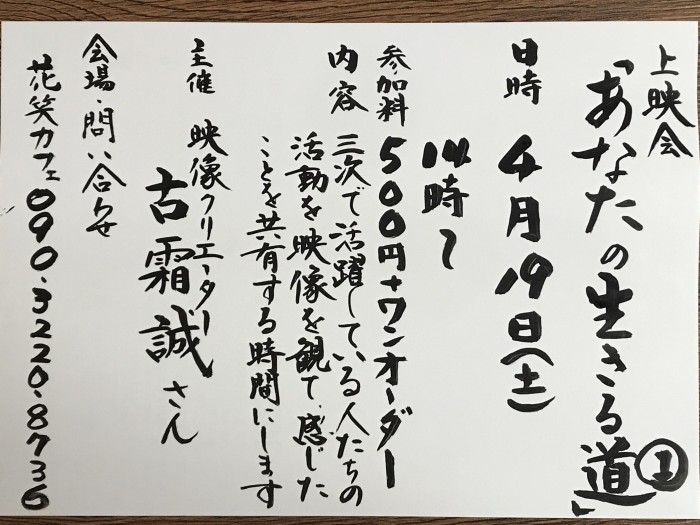 上映会
「あなたの生きる道」①
日時 4月19日(土)
14時〜
参加料 500円+ワンオーダー
内容 三次で活躍している人たちの
活動を映像を観て、感じた
ことを共有する時間にします
主催 映像クリエーター
古霜誠さん
会場・問い合わせ
花笑カフェ 090-3220-8736